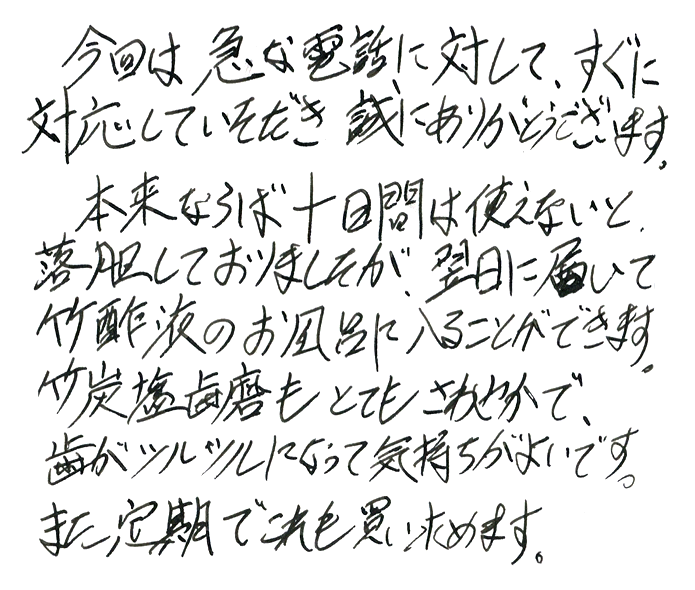 今回は急な電話に対して、すぐに
対応していただき誠にありがとうございます。
本来ならば十日間は使えないと、
落胆しておりましたが、翌日に届いて
竹酢液のお風呂に入ることができます。
竹炭塩歯磨もとてもさわやかで、
歯がツルツルになって気持ちがよいです。
また定期でこれも買いもとめます。